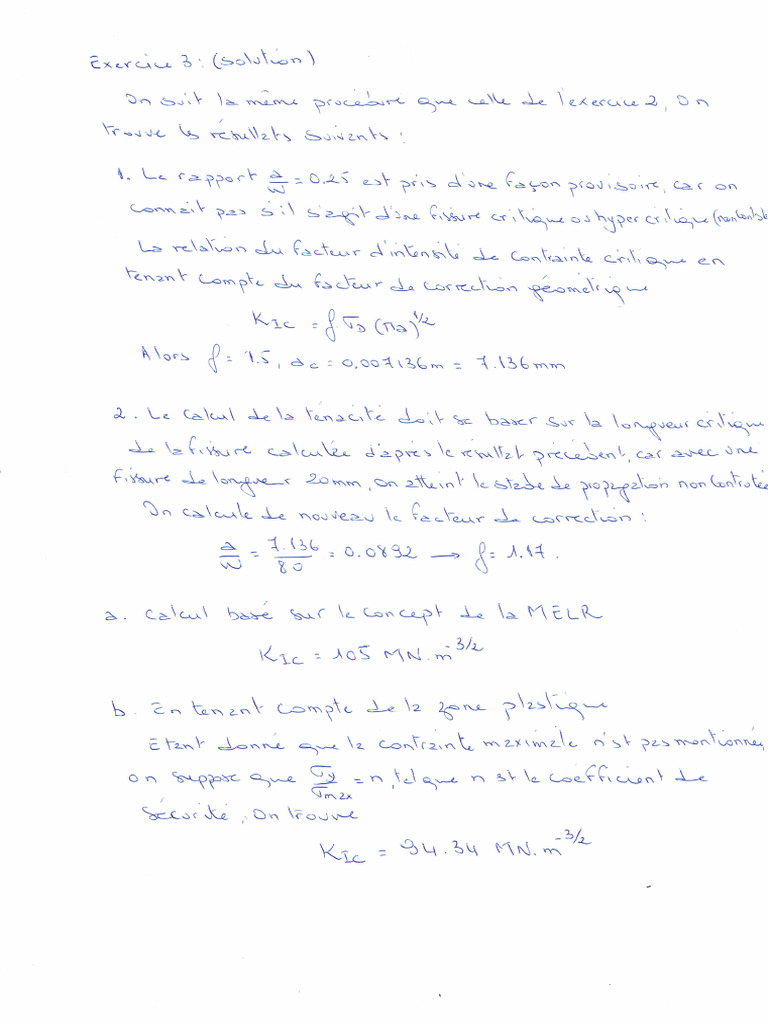 Exercice 3 : (Solution)
On suit la même procédure que celle de l'exercice 2, On
trouve les résultats suivants :
1. Le rapport a/w = 0.25 est pris d'une façon provisoire, car on
connait pas s'il s'agit d'une fissure critique ou hyper critique
La relation du facteur d'intensité de contrainte critique en
tenant compte du facteur de correction géométrique
K_IC = f σ_D (πa)^1/2
Alors f = 1.5, a_c = 0.007136m = 7.136mm
2. Le calcul de la ténacité doit se baser sur la longueur critique
de la fissure calculée d'après le résultat précédent, car avec une
fissure de longueur 20mm, on atteint le stade de propagation non
On calcule de nouveau le facteur de correction :
a/w = 7.136/80 = 0.0892 → f = 1.17.
a. Calcul basé sur le concept de la MELR
K_IC = 105 MN.m^-3/2
b. En tenant compte de la zone plastique
Etant donné que la contrainte maximale n'est pas mentionnée,
on suppose que σ_y/σ_max = n, tel que n est le coéfficient de
sécurité, On trouve
K_IC = 94.34 MN.m^-3/2